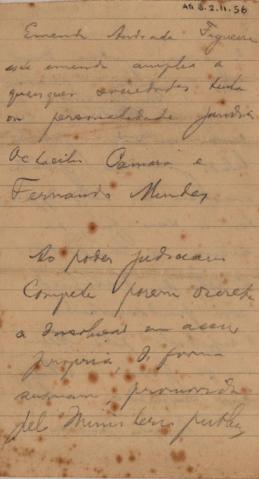 AG 8.2.11.56
Emenda Andrada Figueira
esta emenda amplia a
quaesquer sociedades tenha
ou personalidade juridi
Octacilio Camara e
Fernando Mendes
Ao poder judiciario
Compete porem decret
a dissolução em acção
propria, de forma
summaria, promovida
pelo Ministerio publico